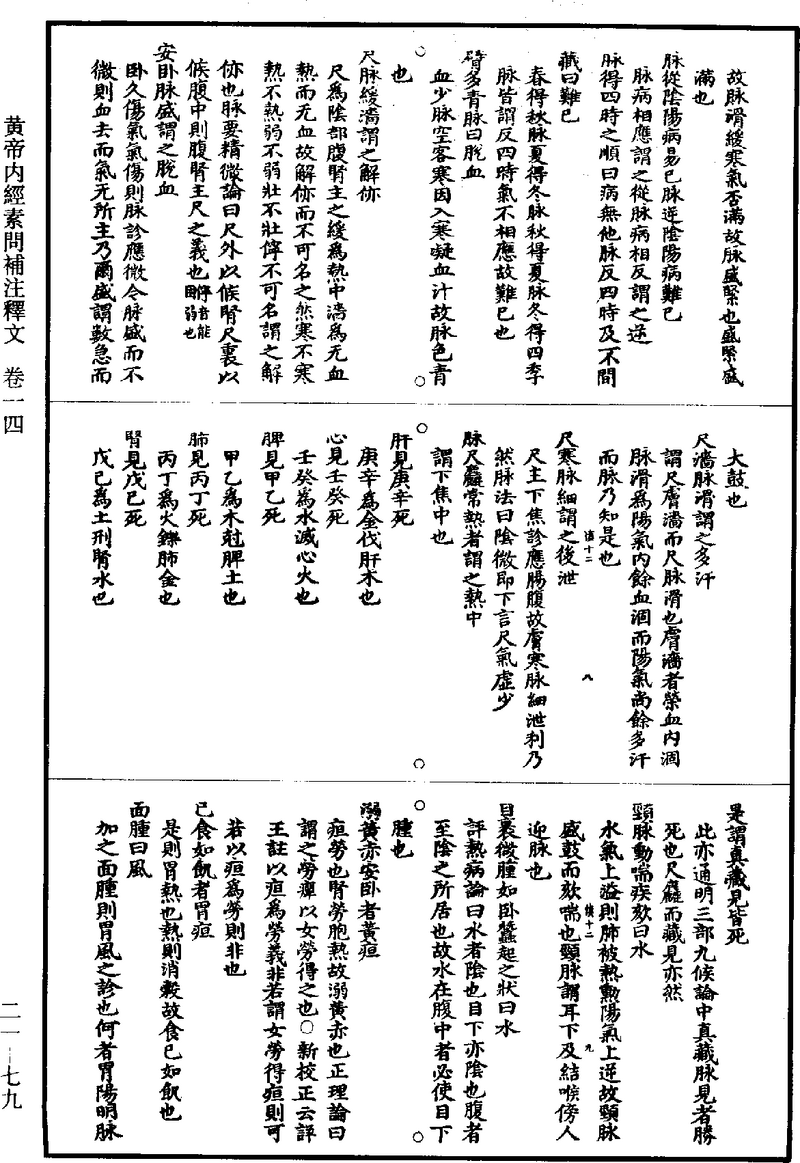 故脉滑緩寒氣否滿故脉盛緊也盛緊盛
滿也
脉從陰陽病易已脉逆陰陽病難已
脉病相應謂之從脉病相反謂之逆
脉得四時之順曰病無他脉反四時及不間
藏曰難已
春得秋脉夏得冬脉秋得夏脉冬得四季
脉皆謂反四時氣不相應故難已也
臂多青脉曰脫血
血少脉空客寒因入寒凝血汁故脉色青
也
尺脉緩濇謂之解㑊
尺爲陰部腹腎主之緩爲熱中濇爲无血
熱而无血故解㑊而不可名之然寒不寒
熱不熱弱不弱壯不壯儜不可名謂之解
㑊也脉要精微論曰尺外以候腎尺裏以
候腹中則腹腎主尺之義也儜音能困弱也
安卧脉盛謂之脫血
卧久傷氣氣傷則脉診應微令脉盛而不
微則血去而氣无所主乃爾盛謂數急而
大鼓也
尺濇脉滑謂之多汗
謂尺膚濇而尺脉滑也膚濇者榮血内涸
脉滑爲陽氣内餘血涸而陽氣尚餘多汗
而脉乃知是也
尺寒脉細謂之後泄
尺主下焦診應腸腹故膚寒脉細泄利乃
然脉法曰陰微即下言尺氣虛少
脉尺麤常熱者謂之熱中
謂下焦中也
肝見庚辛死
庚辛爲金伐肝木也
心見壬癸死
壬癸爲水滅心火也
脾見甲乙死
甲乙爲木尅脾土也
肺見丙丁死
丙丁爲火鑠肺金也
腎見戊己死
戊己爲土刑腎水也
是謂真藏見皆死
此亦通明三部九候論中真藏脉見者勝
死也尺麤而藏見亦然
頸脉動喘疾欬曰水
水氣上溢則肺被熱勳陽氣上逆故頸脉
盛鼓而欬喘也頸脉謂耳下及結喉傍人
迎脉也
目裹微腫如卧蠶起之狀曰水
評熱病論曰水者陰也目下亦陰也腹者
至陰之所居也故水在腹中者必使目下
腫也
溺黄赤安卧者黄疸
疸勞也腎勞胞熱故溺黄赤也正理論曰
謂之勞癉以女勞得之也○新校正云詳
王註以疸爲勞義非若謂女勞得疸則可
若以疸爲勞則非也
已食如飢者胃疸
是則胃熱也熱則消穀故食已如飢也
面腫曰風
加之面腫則胃風之診也何者胃陽明脉
黄帝内經素問補注釋文　卷一四
二一—七九